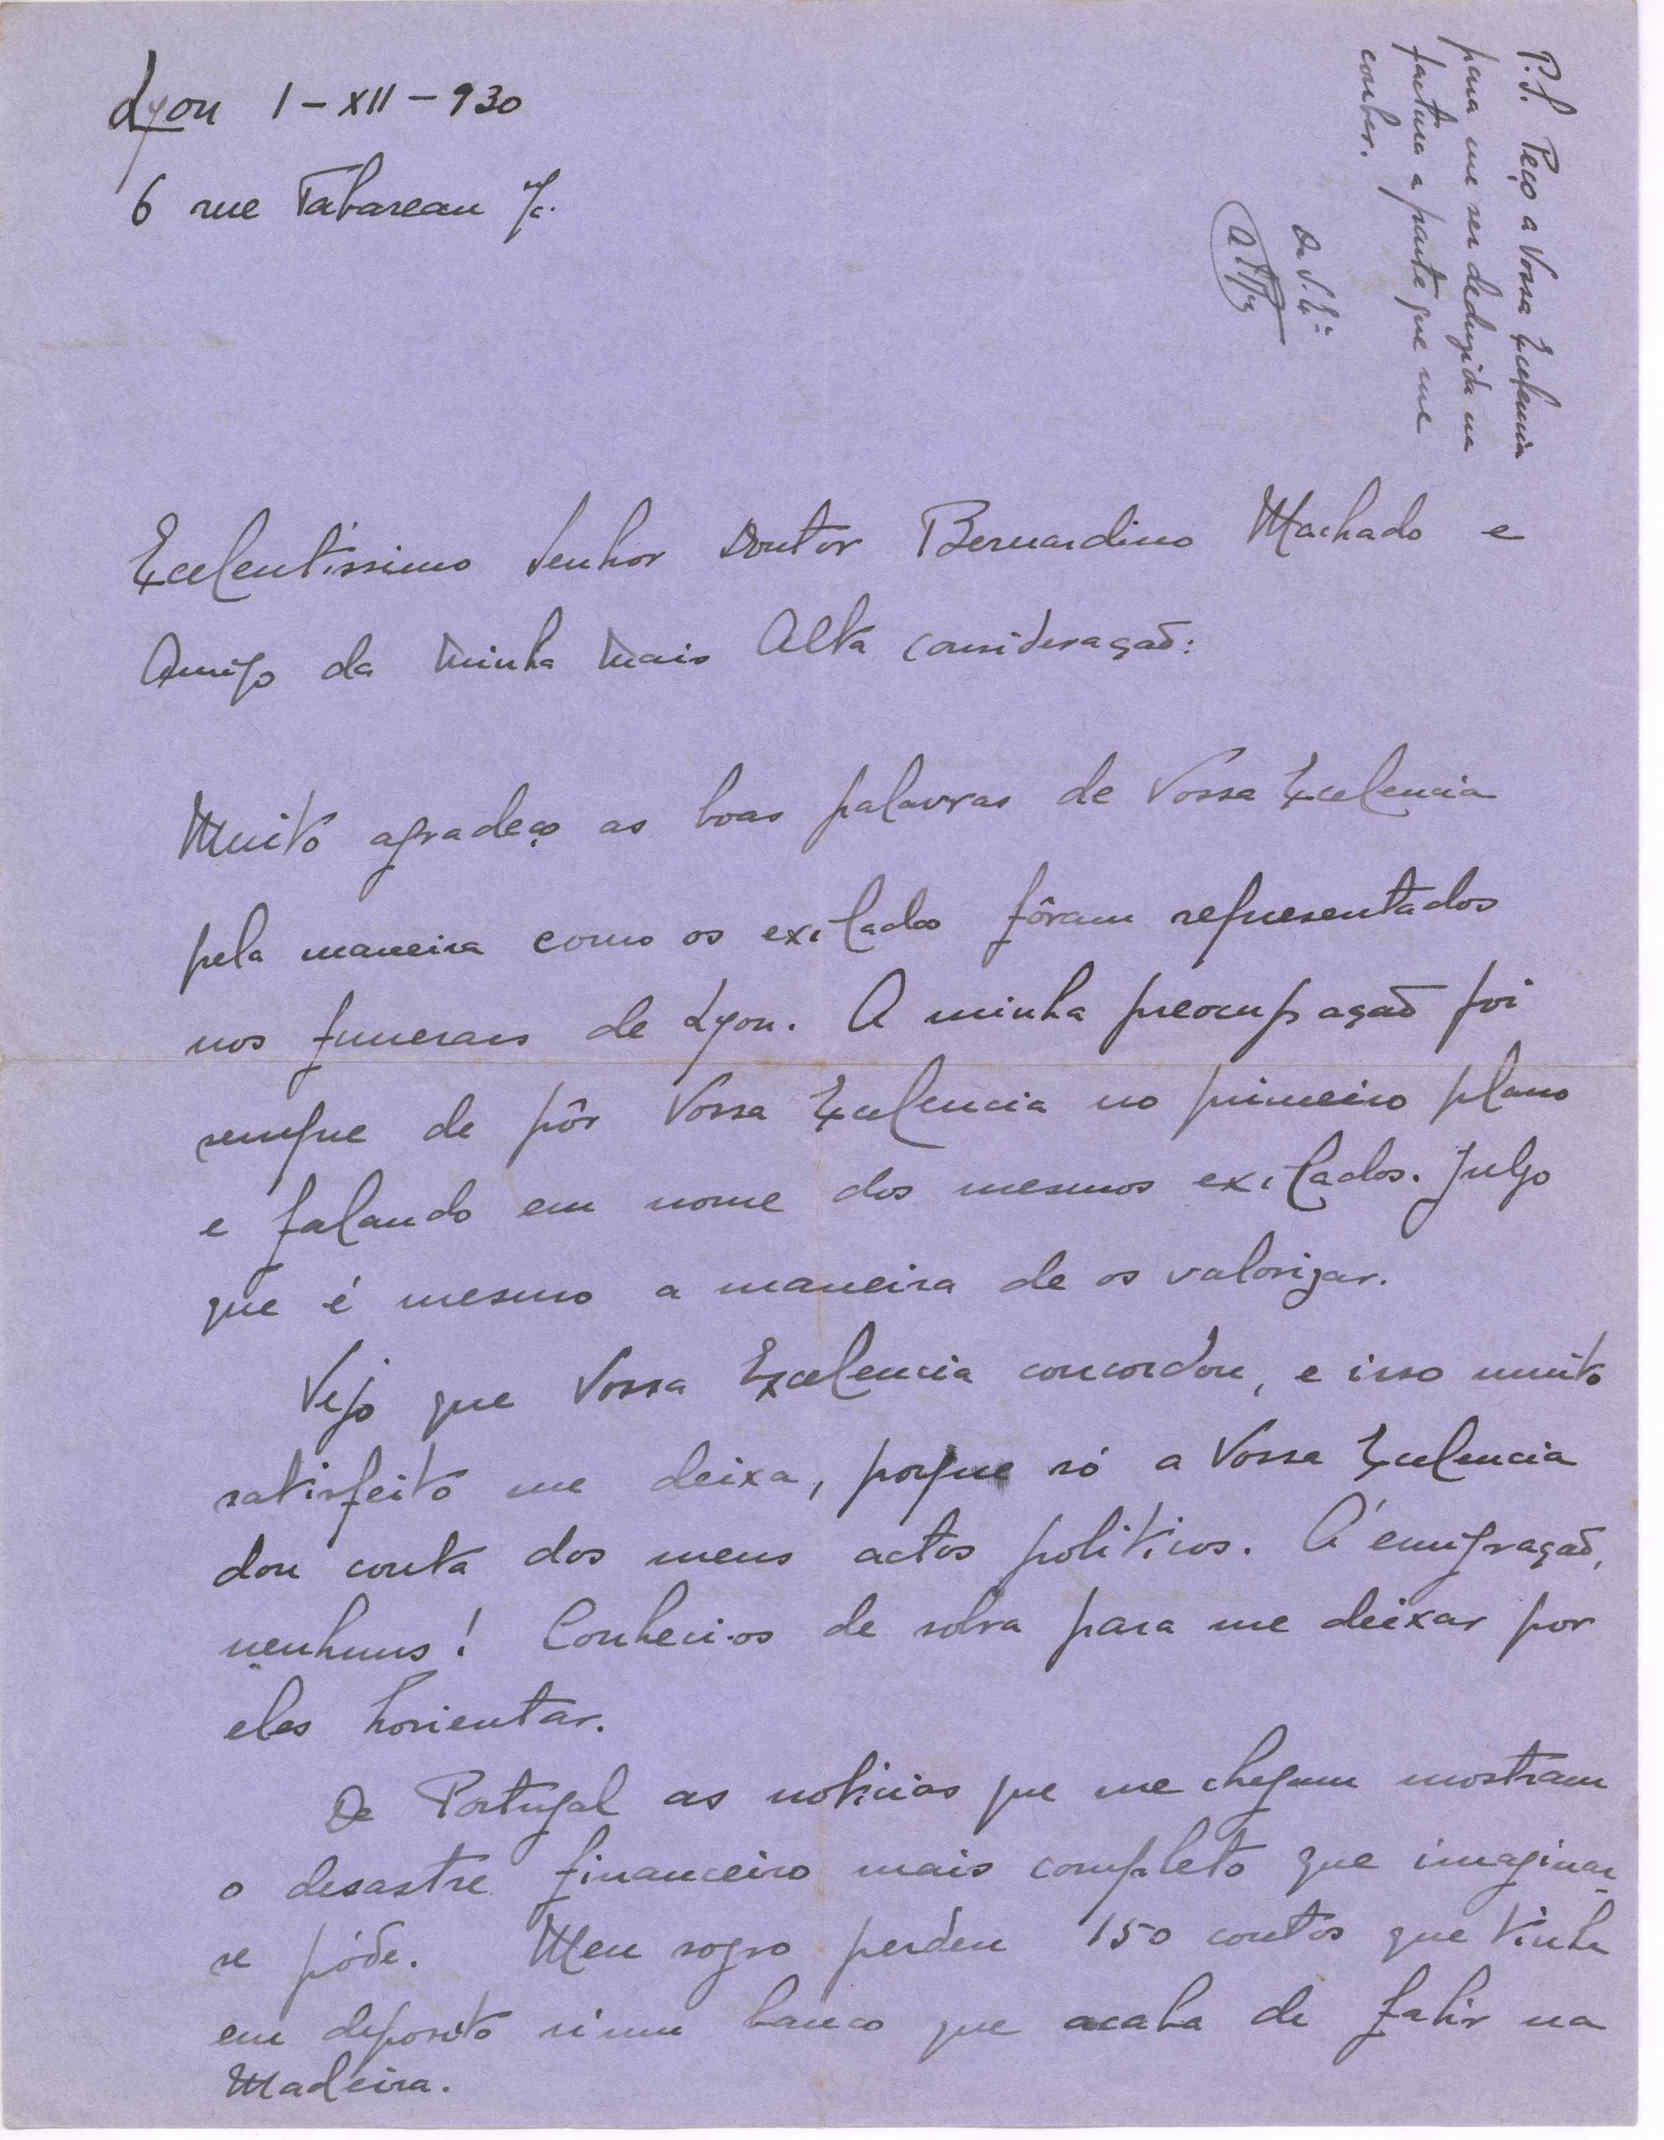 Lyon 1-XII-930
6 rue Tabareau
P.S. Peço a Vossa Excelencia
para me ser deduzida na
factura a parte que me
couber.
De V. Ex.ª
Excelentíssimo Senhor Doutor Bernardino Machado e
Amigo da Minha Mais Alta consideração:
Muito agradeço as boas palavras de Vossa Excelencia
pela maneira como os exilados fôram representados
nos funerais de Lyon. A minha preocupação foi
sempre de pôr Vossa Excelencia no primeiro plano
e falando em nome dos mesmos exilados. Julgo
que é mesmo a maneira de os valorizar.
Vejo que Vossa Excelencia concordou, e isso muito
satisfeito me deixa, porque só a Vossa Excelencia
dou conta dos meus actos politicos. Á emigração,
nenhuns! Conheci-os de sobra para me deixar por
eles horientar.
De Portugal as noticias que me chegam mostram
o desastre financeiro mais completo que imaginar-
se póde. Meu sogro perdeu 150 contos que tinha
em deposito n'um banco que acaba de falir na
Madeira.